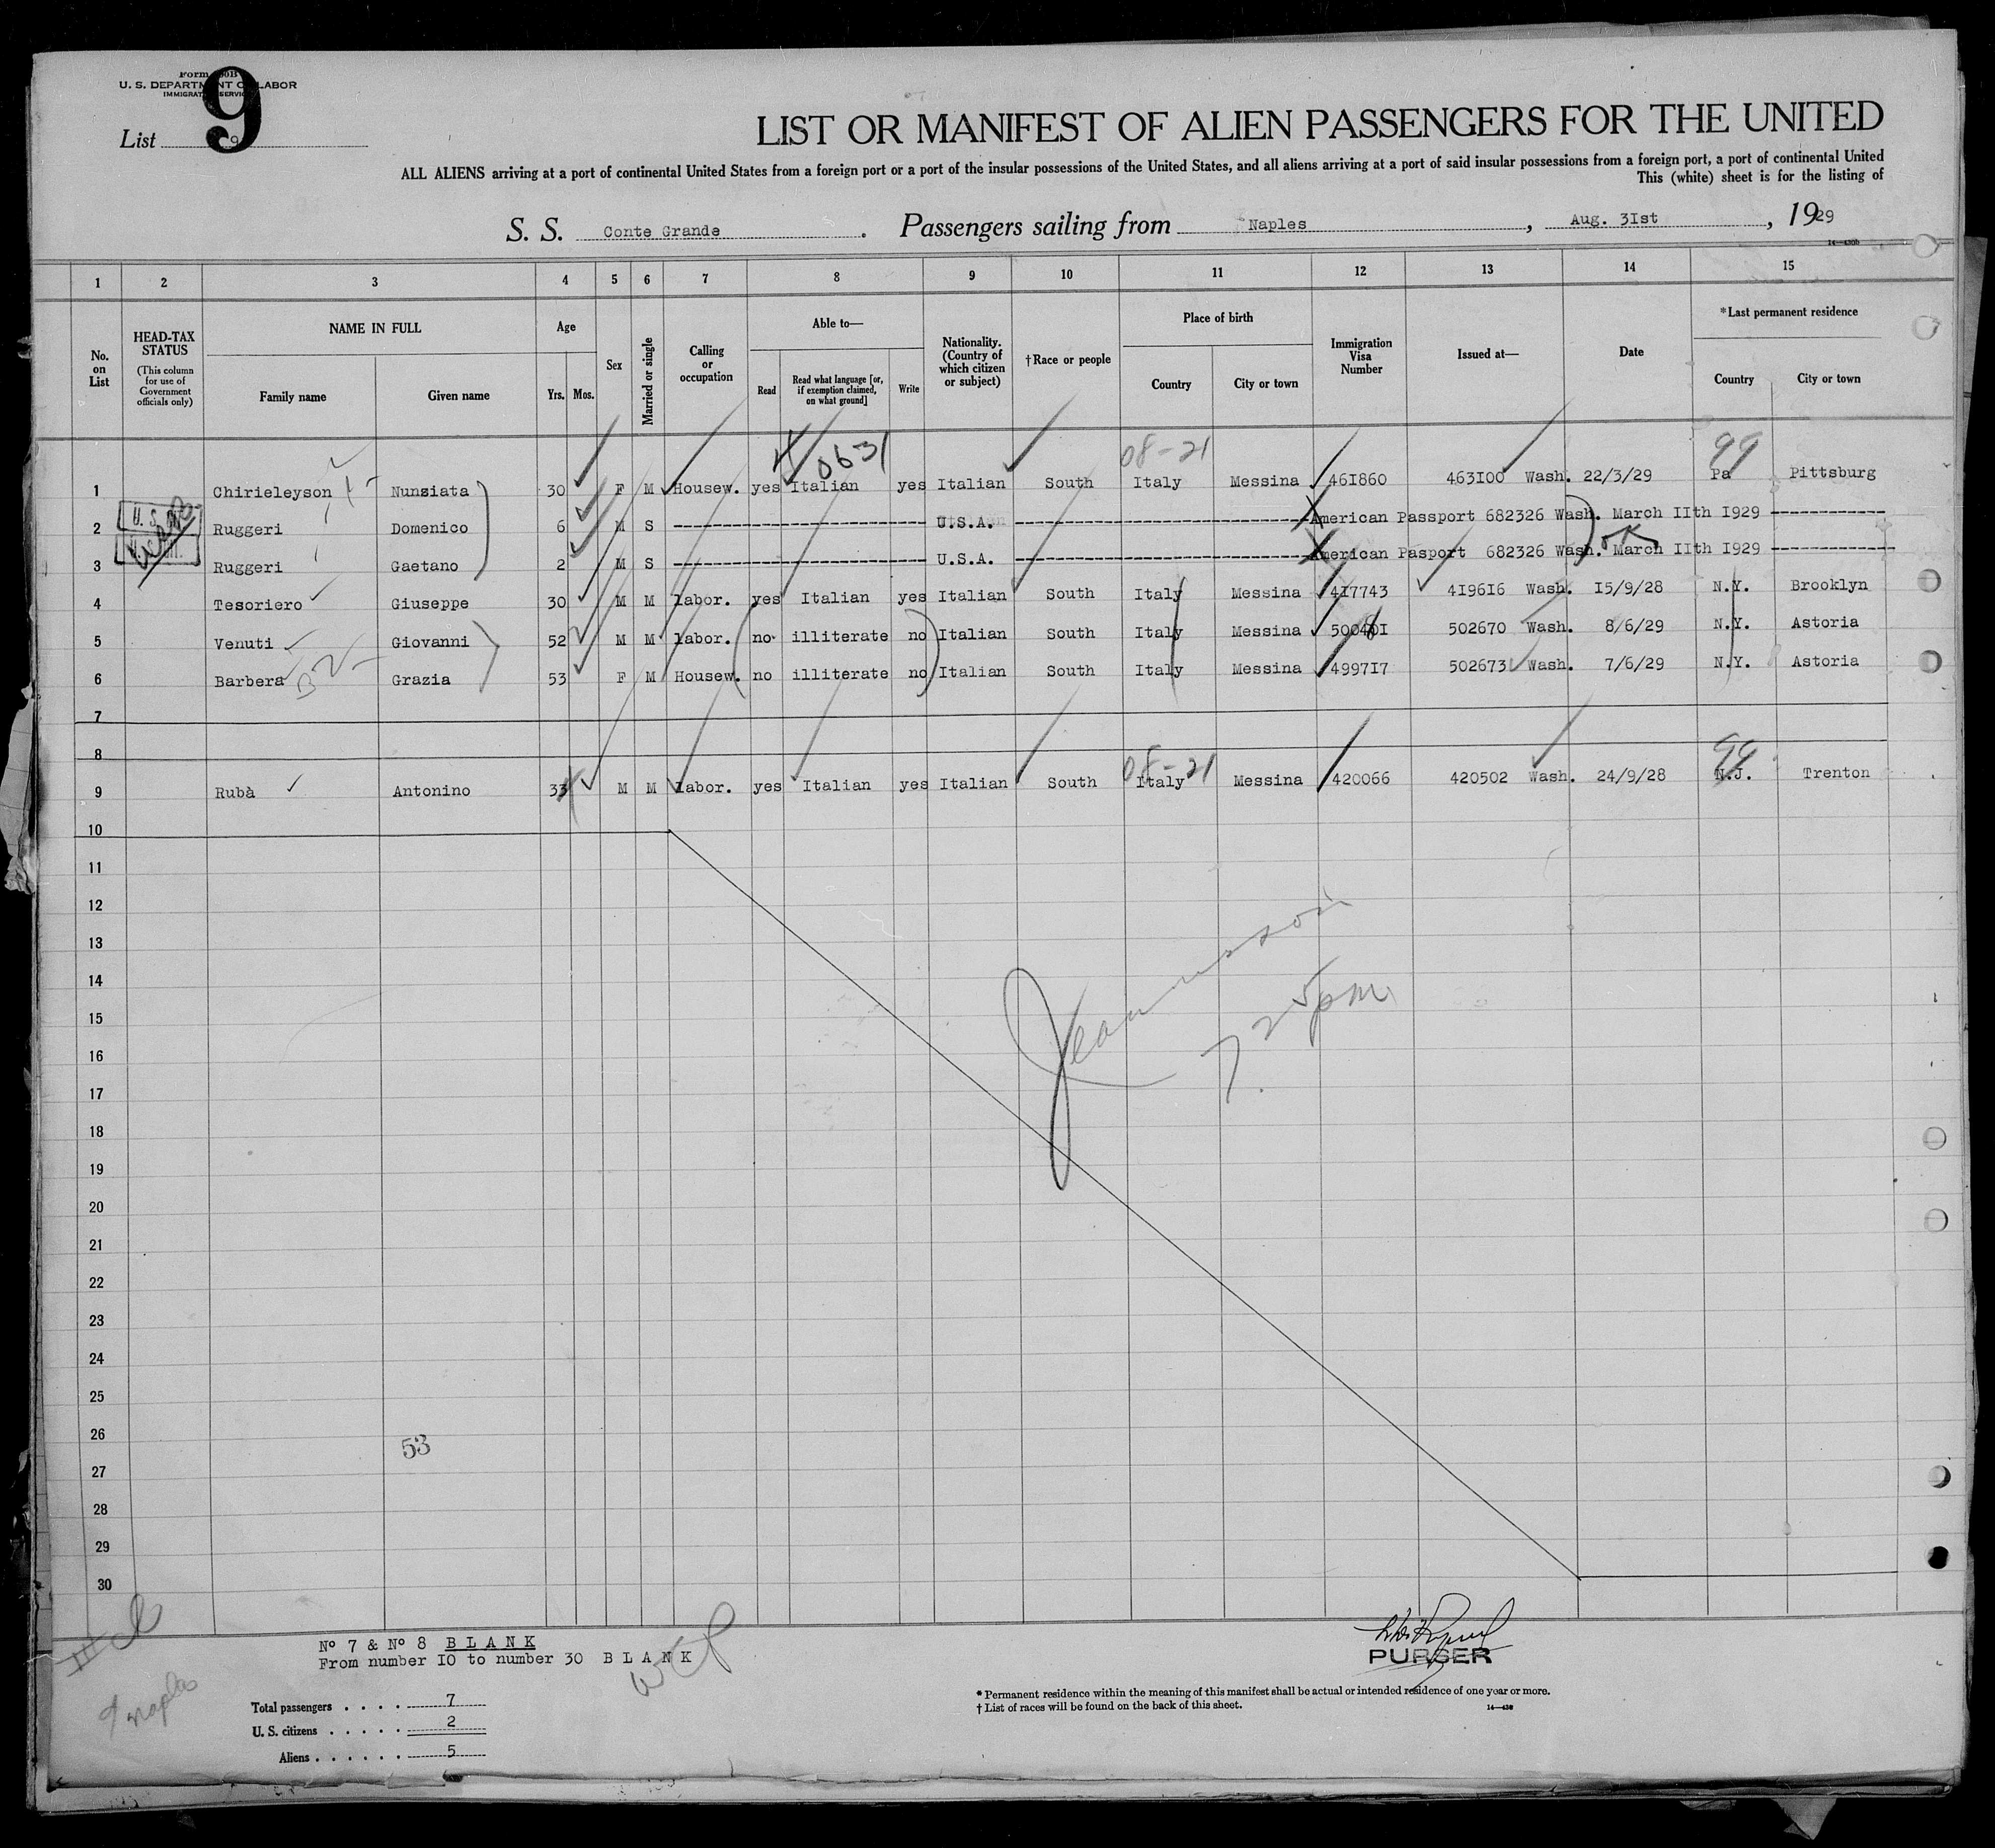 Form 500B
U. S. DEPARTMENT OF LABOR
IMMIGRATION SERVICE
9
List 9
LIST OR MANIFEST OF ALIEN PASSENGERS FOR THE UNITED
ALL ALIENS arriving at a port of continental United States from a foreign port or a port of the insular possessions of the United States, and all aliens arriving at a port of said insular possessions from a foreign port, a port of continental United
This (white) sheet is for the listing of
S. S. Conte Grande. Passengers sailing from Naples, Aug. 3Ist, 1929
14—430b
1 2 3 4 5 6 7 8 9 10 11 12 13 14 15
No. on List
HEAD-TAX STATUS (This column for use of Government officials only)
NAME IN FULL Family name Given name
Age Yrs. Mos.
Sex
Married or single
Calling or occupation
Able to— Read Read what language [or, if exemption claimed, on what ground] Write
Nationality. (Country of which citizen or subject)
†Race or people
Place of birth Country City or town
Immigration Visa Number
Issued at—
Date
*Last permanent residence Country City or town
0631 08-21 99
1 Chirieleyson Nunziata 30 F M Housew. yes Italian yes Italian South Italy Messina 46I860 463I00 Wash. 22/3/29 Pa Pittsburg
2 Ruggeri Domenico 6 M S U.S.A. American Passport 682326 Wash. March IIth I929
3 Ruggeri Gaetano 2 M S U.S.A. American Pasport 682326 Wash. March IIth I929
OK
4 Tesoriero Giuseppe 30 M M labor. yes Italian yes Italian South Italy Messina 4I7743 4I96I6 Wash. I5/9/28 N.Y. Brooklyn
5 Venuti Giovanni 52 M M labor. no illiterate no Italian South Italy Messina 502670 Wash. 8/6/29 N.Y. Astoria
6 Barbera Grazia 53 F M Housew. no illiterate no Italian South Italy Messina 4997I7 502673 Wash. 7/6/29 N.Y. Astoria
7
8
08-21 99
9 Rubà Antonino 33 M M labor. yes Italian yes Italian South Italy Messina 420066 420502 Wash. 24/9/28 N.J. Trenton
10
11
12
13
14
15
7.25 pm
16
17
18
19
20
21
22
23
24
25
26
53
27
28
29
30
Nº 7 & Nº 8 BLANK
From number IO to number 30 BLANK
PURSER
Total passengers . . . . 7
U. S. citizens . . . . . 2
Aliens . . . . . . 5
Naples
* Permanent residence within the meaning of this manifest shall be actual or intended residence of one year or more.
† List of races will be found on the back of this sheet.
14—430